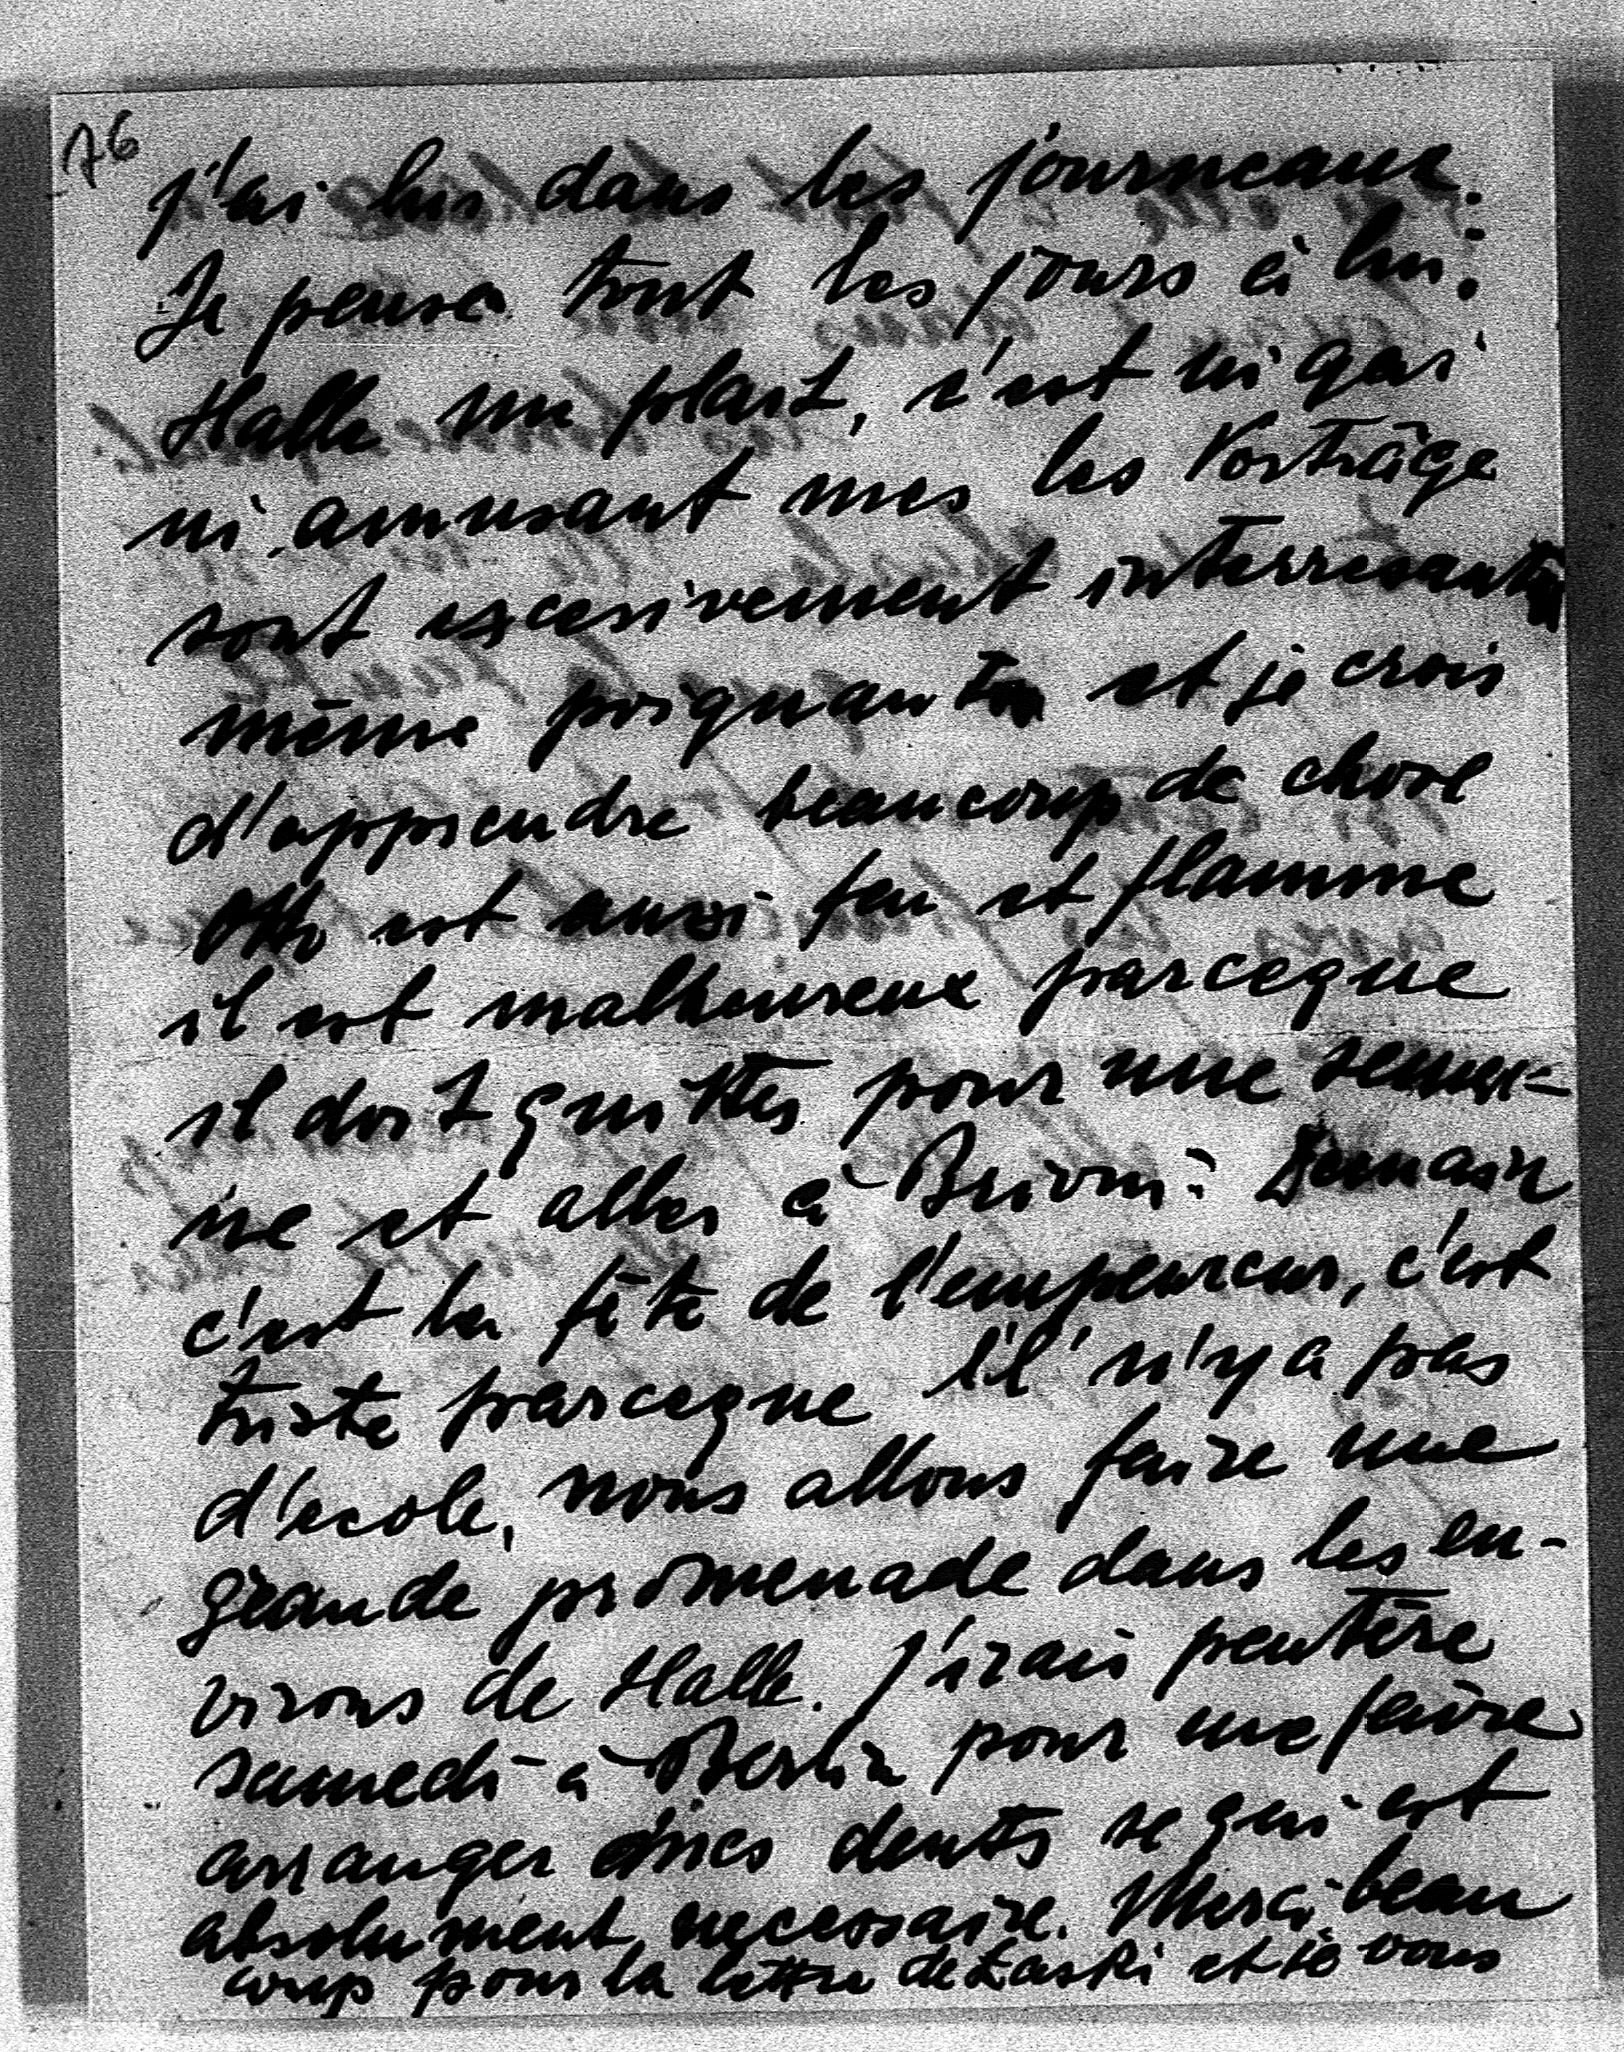 76
j'ai lus dans les journeaux.
Je pense tout les jours à lui.
Halle me plait, c'est ni gai
ni amusant mes les Vorträge
sont excesivement interresant
même poignant et je crois
d'apprendre beaucoup de chose
Otto est aussi feu et flamme
il est malheureux parceque
il doit quitter pour une semai-
ne et aller à Brioni. Demain
c'est la fête de l'empeureur, c'est
triste parceque il n'y a pas
d'ecole, nous allons faire une
grande promenade dans les en-
virons de Halle. J'irais peutêre
samedi à Berlin pour me faire
arranger mes dents se qui est
absolument necessaire. Merci beau
coup pour la lettre de Laski et je vous